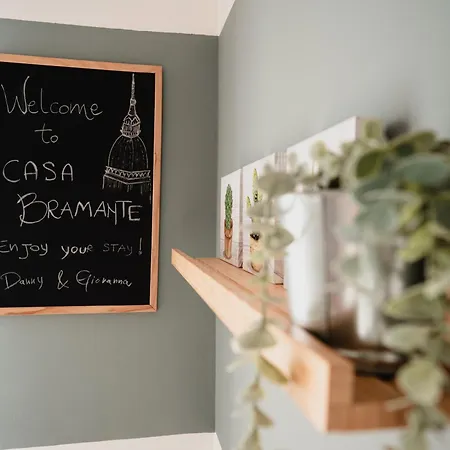 Welcome
to
CASA
BRAMANTE
Enjoy your stay!
Danny & Giovanna